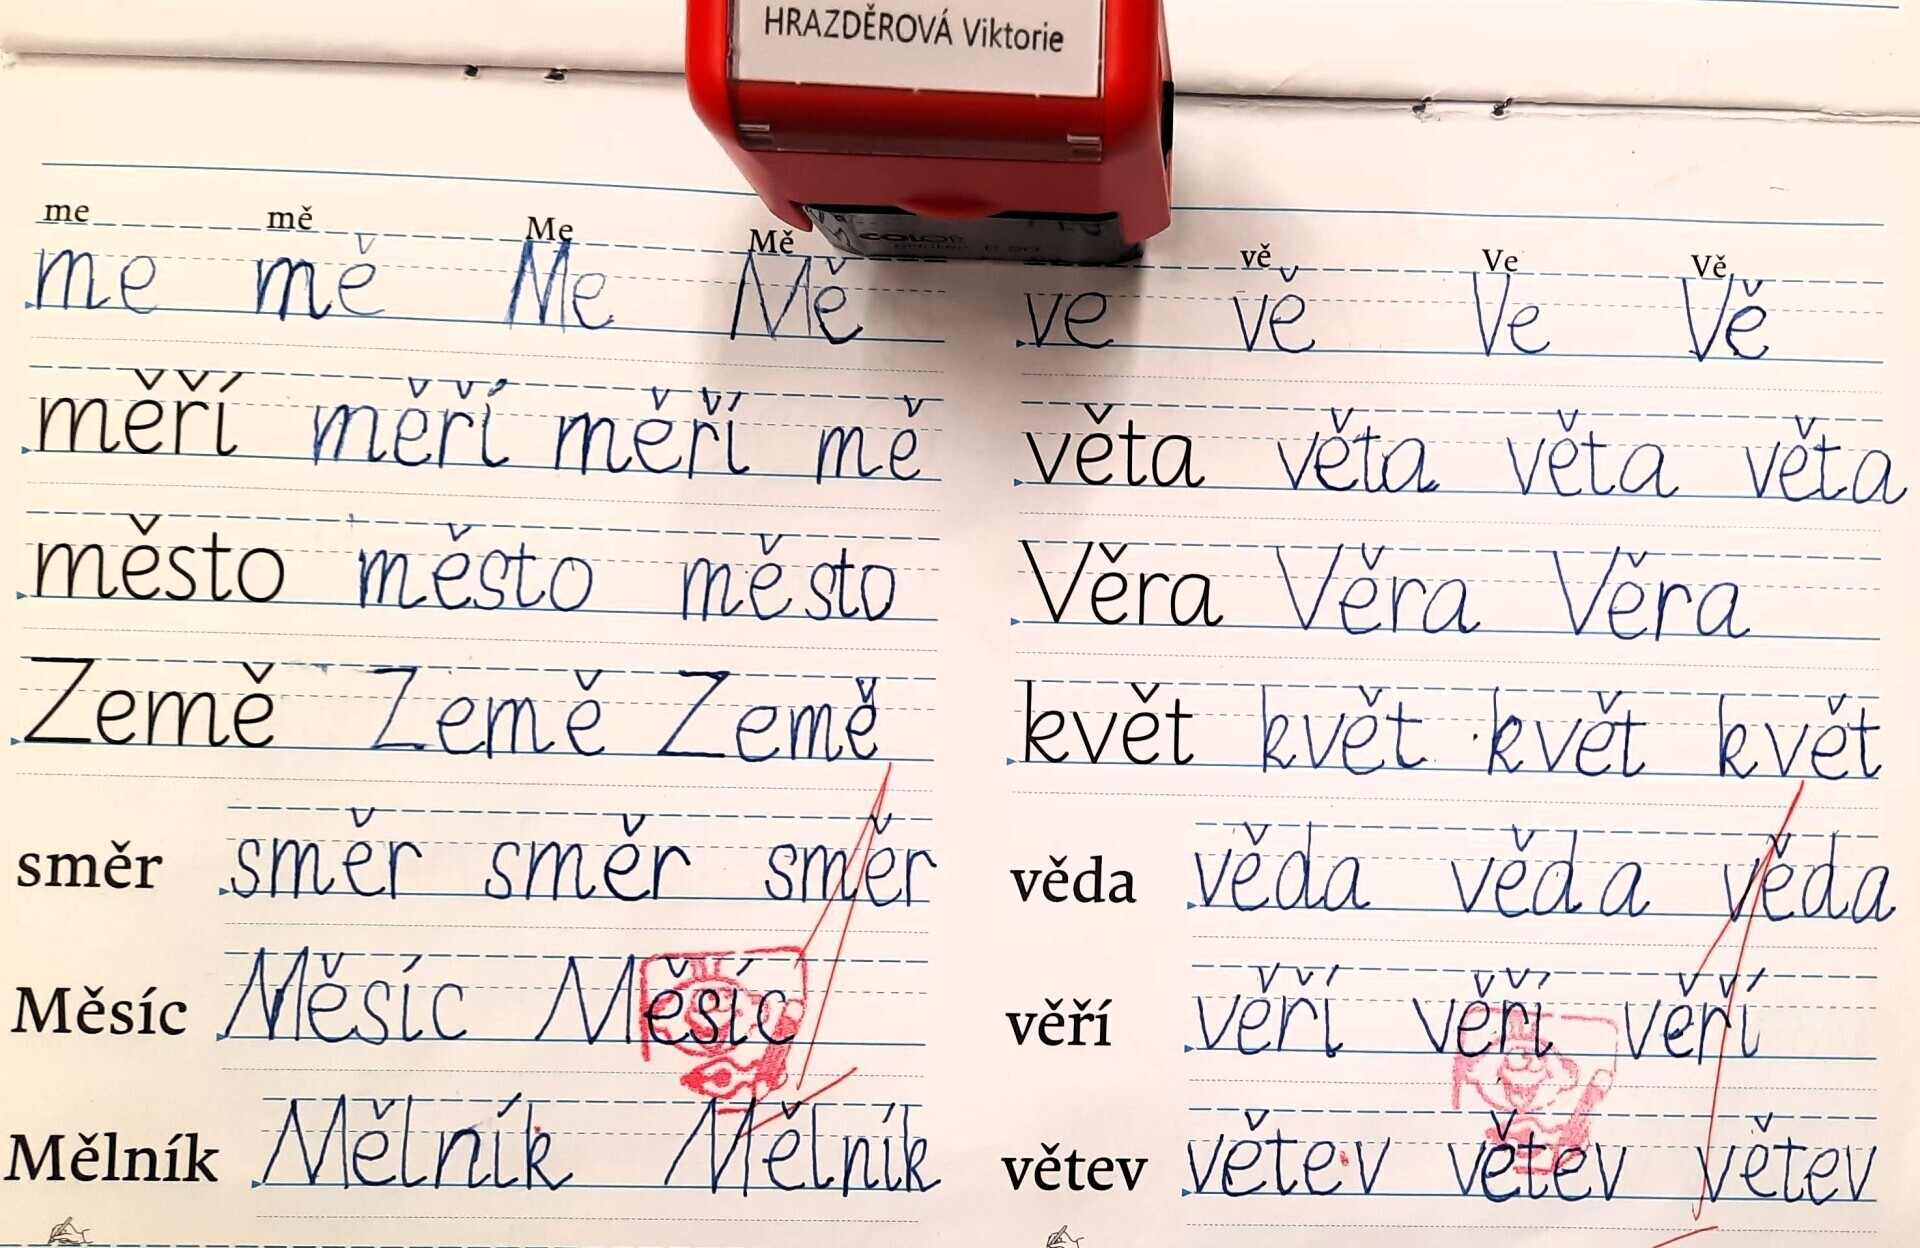 HRAZDĚROVÁ Viktorie
COLOP
me mě Me Mě
me mě Me Mě
měří měří měří mě
město město město
Země Země Země
směr směr směr směr
Měsíc Měsíc Měsíc
Mělník Mělník Mělník
vě Ve Vě
ve vě Ve Vě
věta věta věta věta
Věra Věra Věra
květ květ květ květ
věda věda věda věda
věří věří věří věří
větev větev větev větev